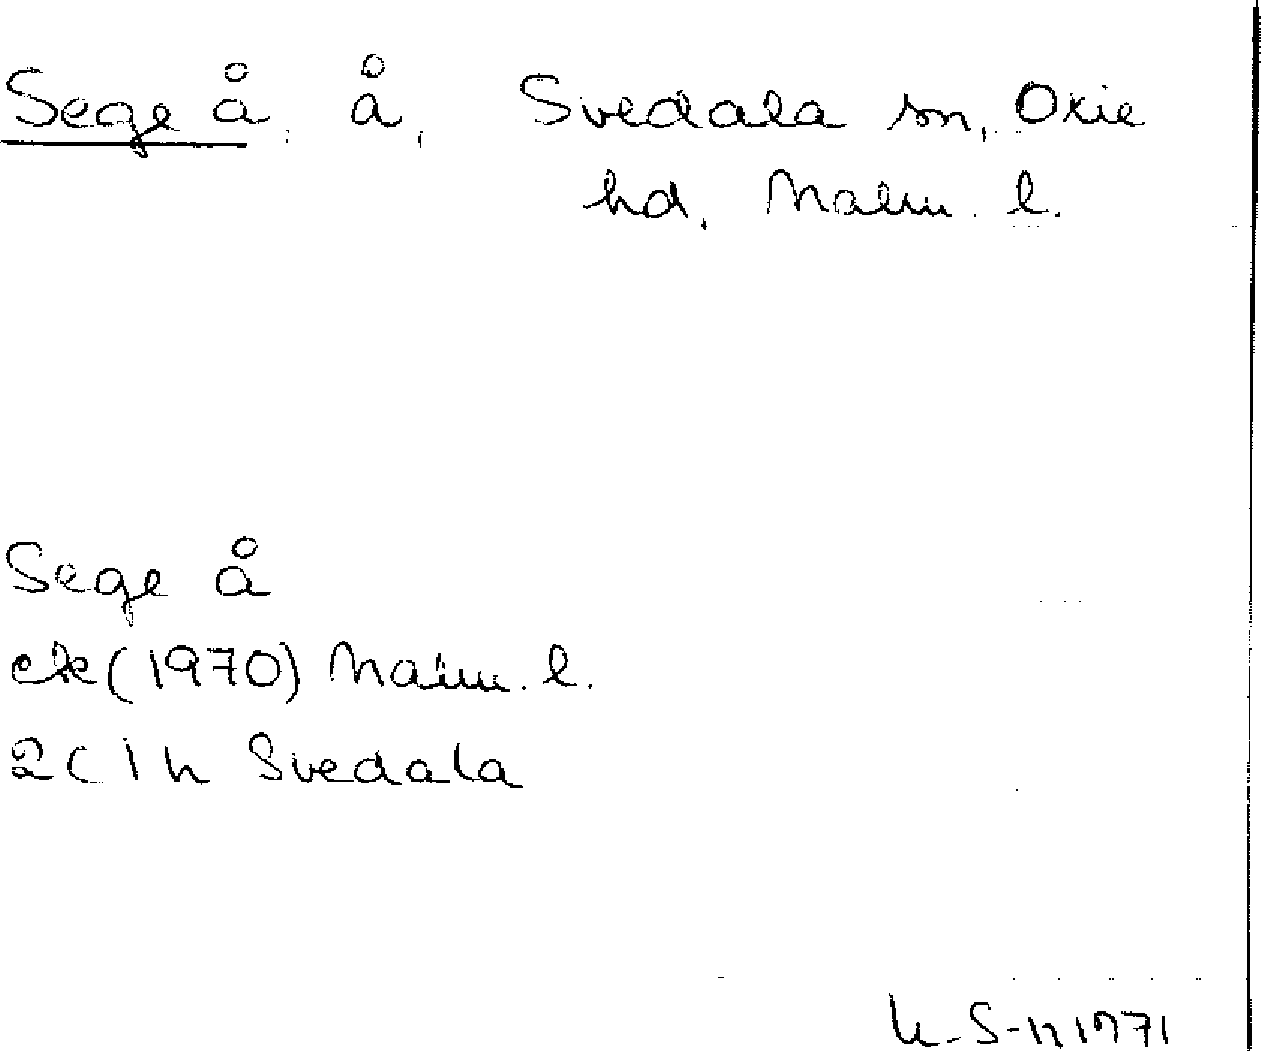 Sege å, å, Svedala sn, Oxie
hd, Malm. l.
Sege å
ek (1970) Malm. l.
2C 1h Svedala
K. S-n 1971